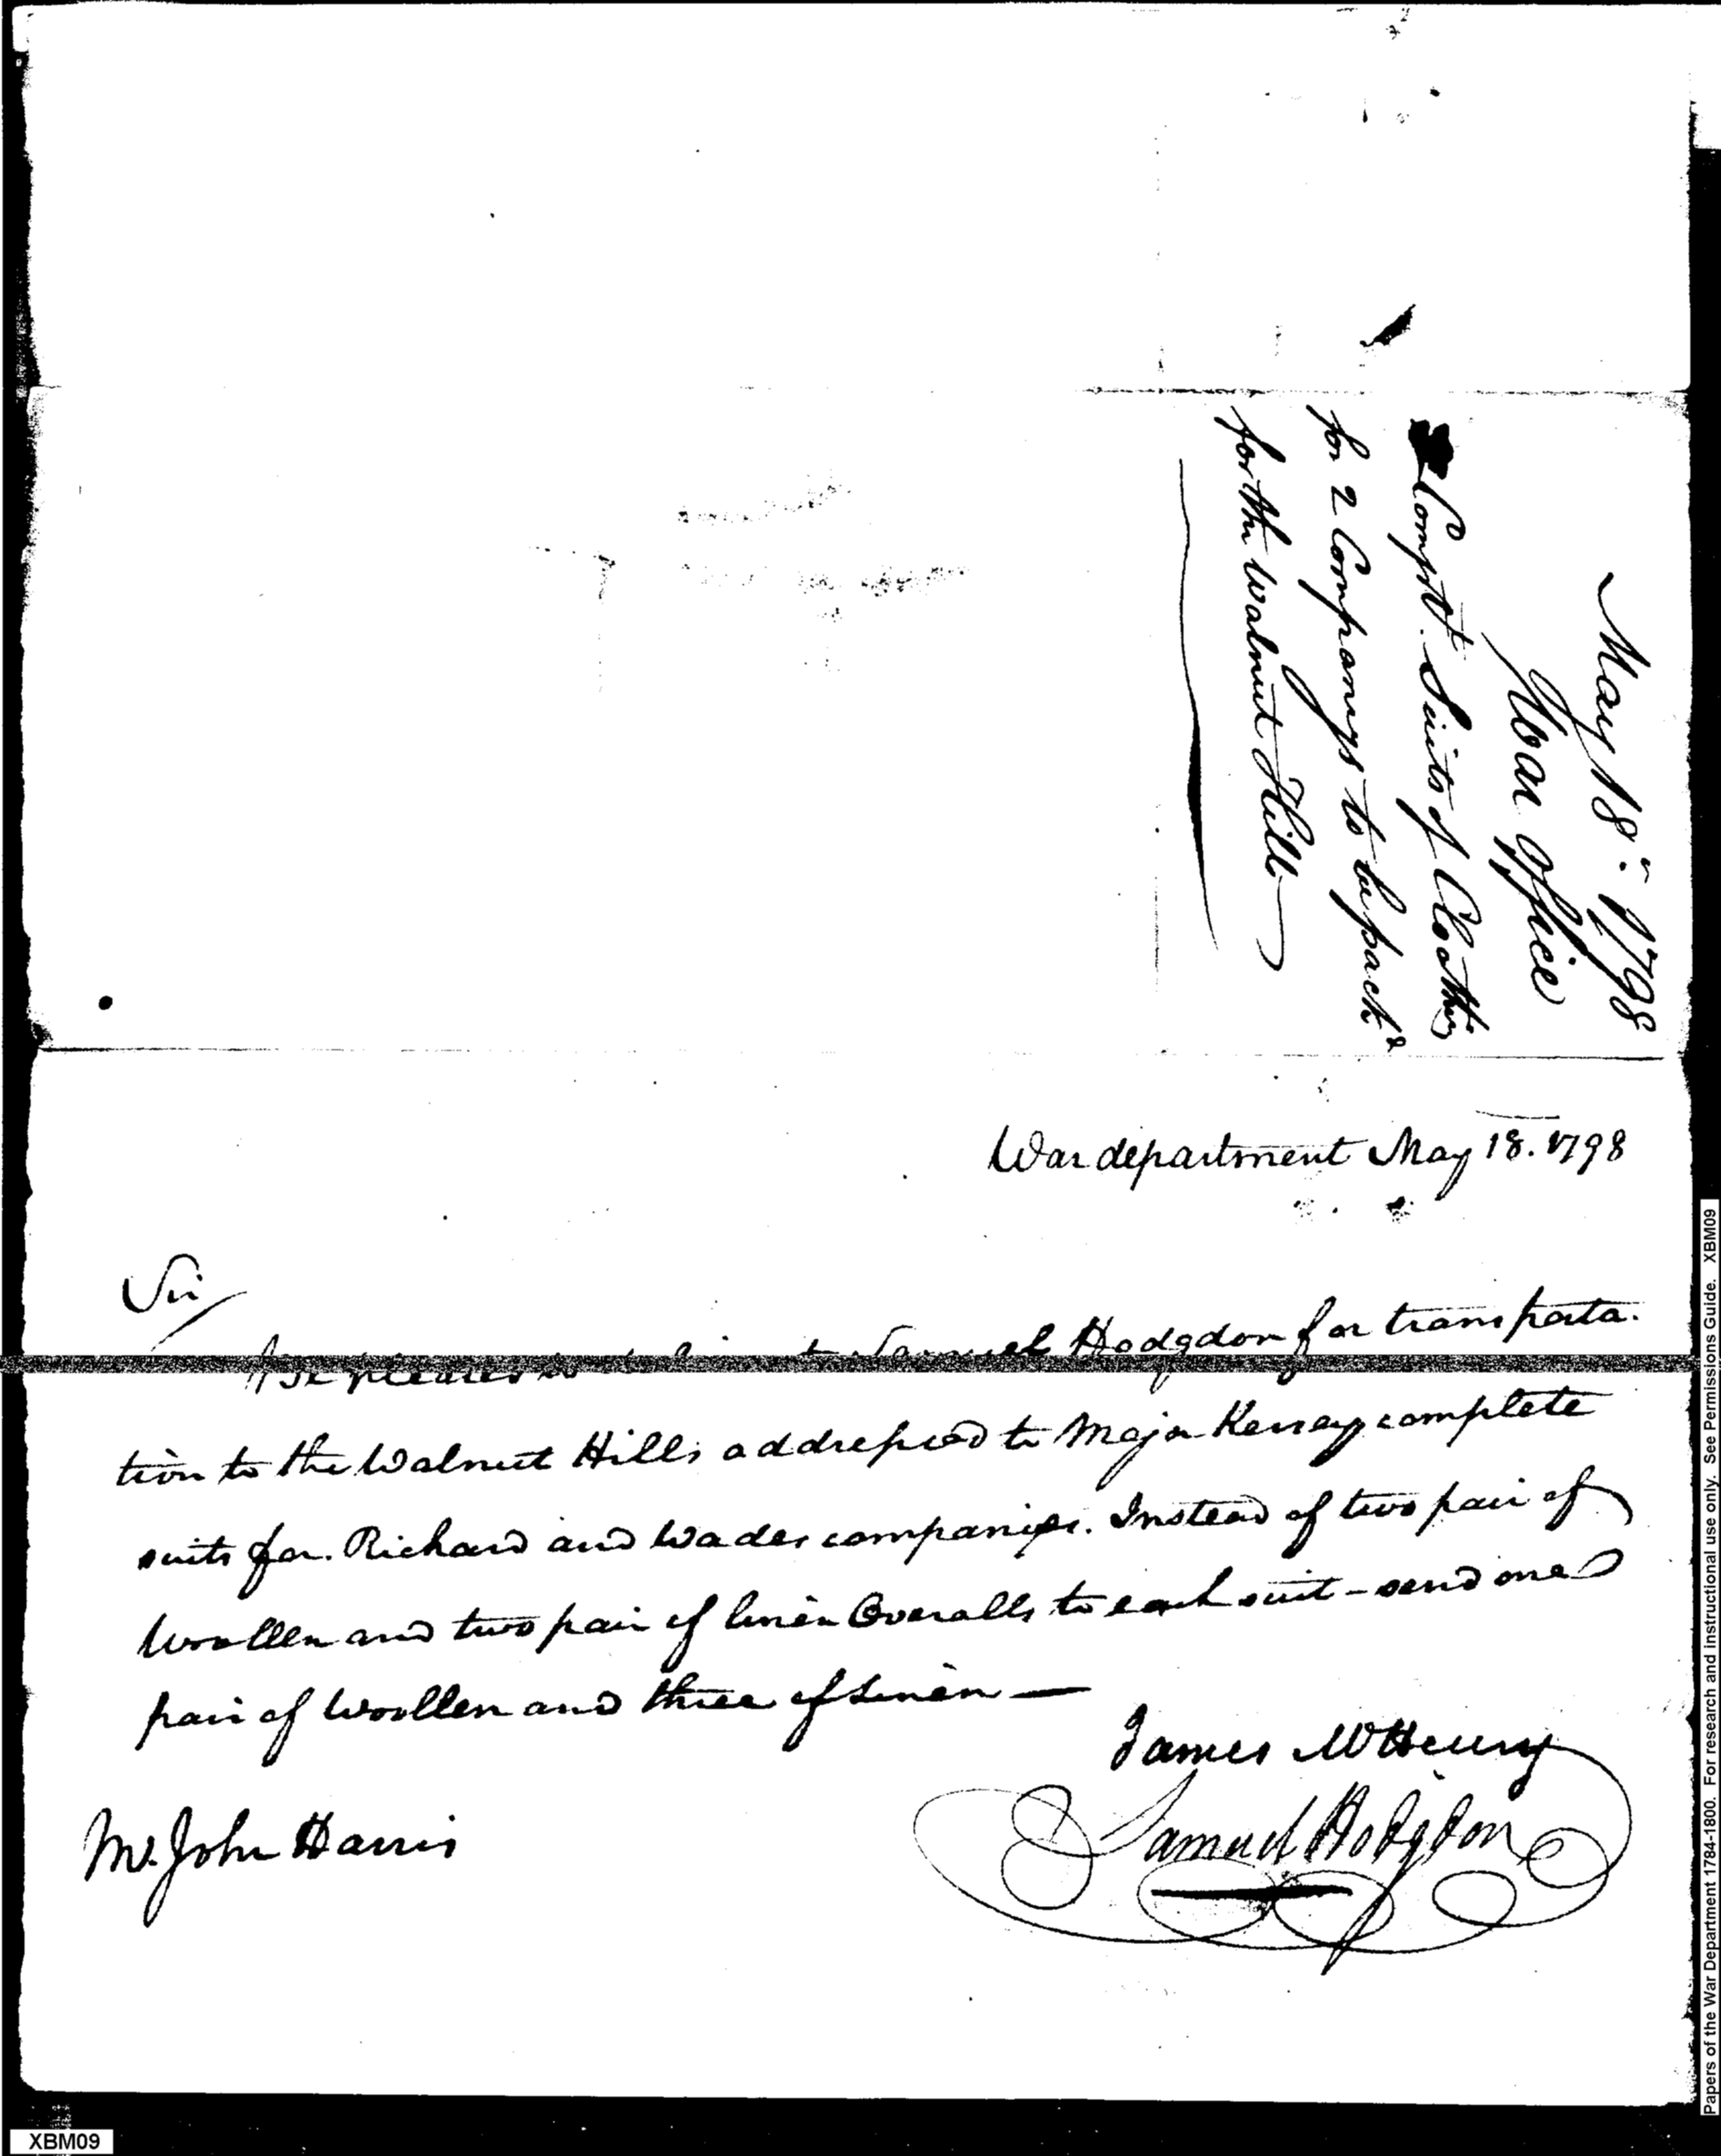 May 18th 1798
War office
Compt. Suits of Clothing
for 2 Companys to be pack'd
for the Walnut Hills
War department May 18. 1798
Sir
Be pleased to deliver to Samuel Hodgdon for transporta-
tion to the Walnut Hills addressed to Major Kersey complete
suits for Richard and Wades companies. Instead of two pair of
Woollen and two pair of linen Overalls to each suit - send one
pair of Woollen and three of Linen —
James McHenry
Samuel Hodgdon
Mr. John Harris
XBM09
Papers of the War Department 1784-1800. For research and instructional use only. See Permissions Guide. XBM09